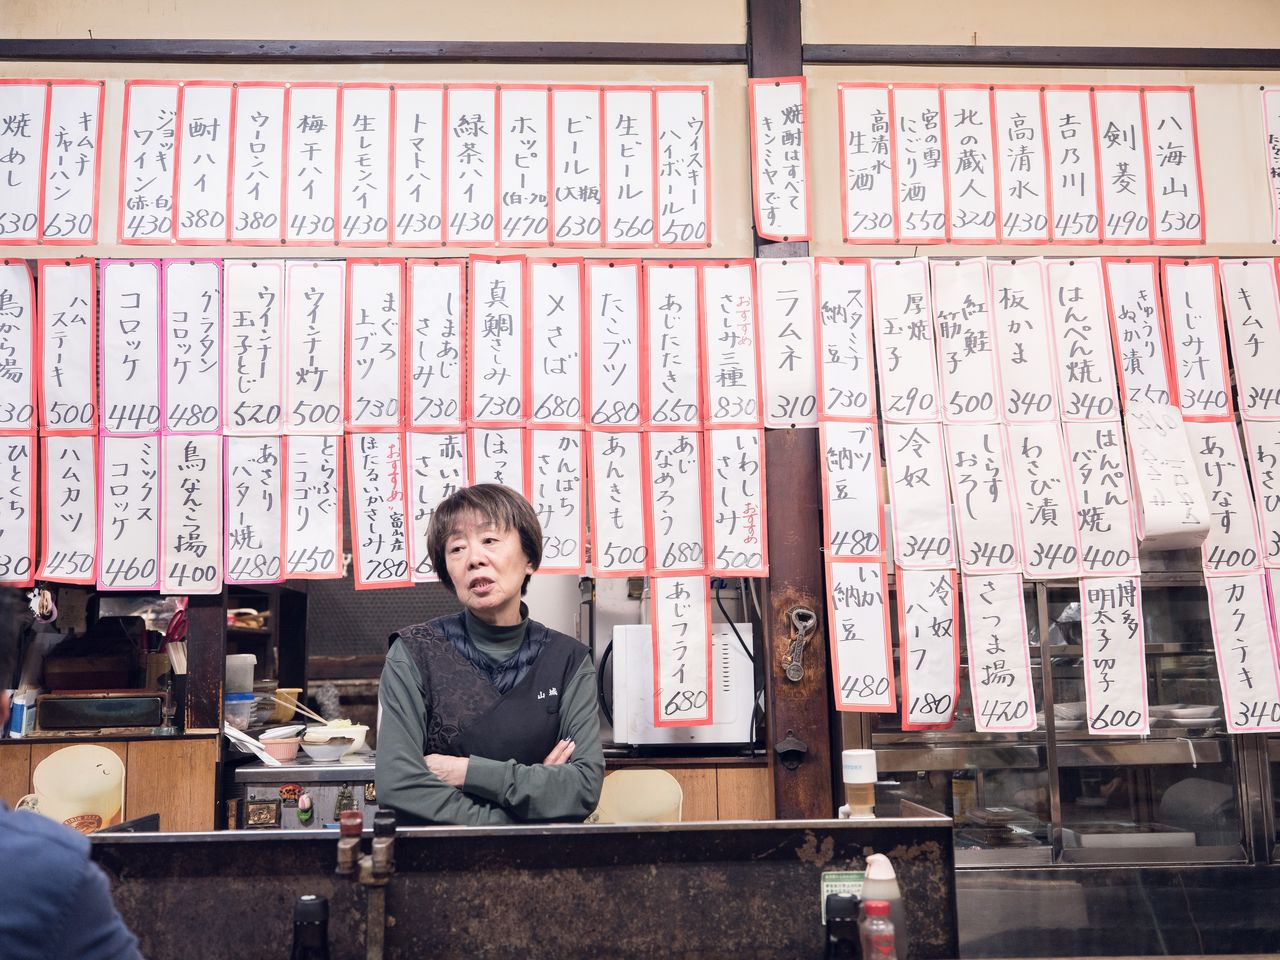 焼めし 630
キムチチャーハン 630
ジョッキワイン(赤・白) 430
酎ハイ 380
ウーロンハイ 380
梅干ハイ 430
生レモンハイ 430
トマトハイ 430
緑茶ハイ 430
ホッピー(白・クロ) 470
ビール(大瓶) 630
生ビール 560
ウイスキーハイボール 500
焼酎はすべてキンミヤです。
高清水生酒 730
宮の雪にごり酒 550
北の蔵人 320
高清水 430
吉乃川 450
剣菱 490
八海山 530
鳥から揚 630
ハムステーキ 500
コロッケ 440
グラタンコロッケ 480
ウインナー玉子とじ 520
ウインナー炒 500
まぐろ上ブツ 730
しまあじさしみ 730
真鯛さしみ 730
〆さば 680
たこブツ 680
あじたたき 650
おすすめさしみ三種 830
ラムネ 310
スタミナ納豆 730
厚焼玉子 290
紅鮭筋子 500
板かま 340
はんぺん焼 340
きゅうりぬか漬 250
しじみ汁 340
キムチ 340
ひとくち
ハムカツ 450
ミックスコロッケ 460
鳥なんこつ揚 400
あさりバター焼 480
とらふぐニコゴリ 450
おすすめ富山産ほたるいかさしみ 780
赤いかさしみ
ほっ
かんぱちさしみ 730
あんきも 500
あじなめろう 680
いわしさしみおすすめ 500
ブツ納豆 480
冷奴 340
しらすおろし 340
わさび漬 340
はんぺんバター焼 400
あげなす 400
わさび
あじフライ 680
いか納豆 480
冷奴ハーフ 180
さつま揚 420
博多明太子 600
カクテキ 340
山城